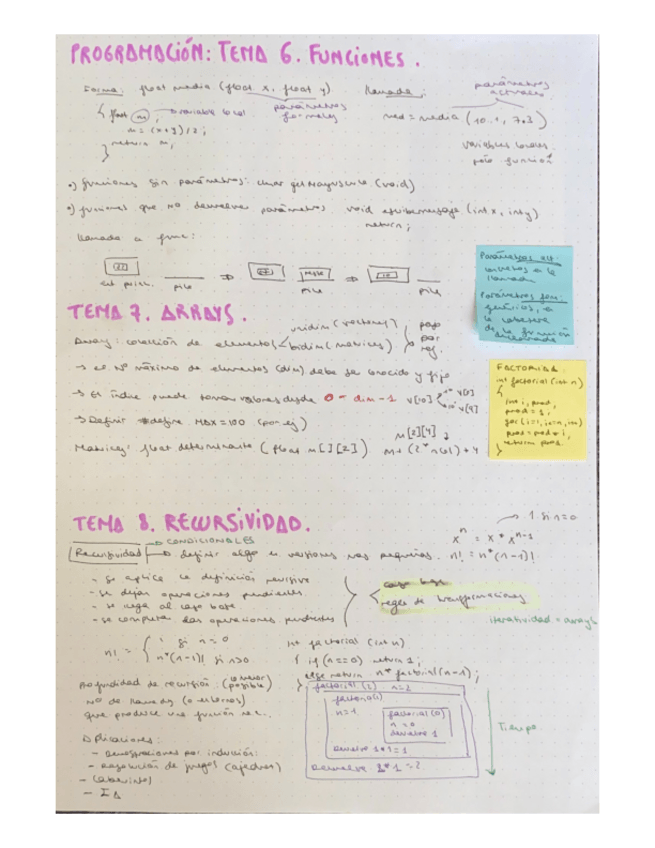 PROGRAMACIÓN: TEMA 6. FUNCIONES.
Forma: float media (float x, float y)
llamada:
parámetros actuales
{ float m; → variable local
parámetros formales
m = (x+y)/2;
return m;
}
med = media (10.1, 7.3)
variables locales
función
•) funciones sin parámetros: char getMayuscula (void)
•) funciones que no devuelven parámetros void escribemensaje (int x, int y)
return;
llamada a func:
pila
pila
pila
Parámetros act:
llamada
Parámetros form:
genéricos, a
la cabecera
de la función
TEMA 7. ARRAYS.
Array: colección de elementos
unidim (vectores)
bidim (matrices)
paso
por
ref.
→ el Nº máximo de elementos (dim) debe ser conocido y fijo
→ El índice puede tomar valores desde 0 - dim-1 v[10]
v[0]
v[9]
→ Definir #define MAX=100 (por ej)
Matrices: float determinante (float m[][2])
m[2][4]
FACTORIAL:
int factorial (int n)
{
int i, prod;
prod = 1;
for (i=1; i<=n; i++)
prod = prod * i;
return prod;
TEMA 8. RECURSIVIDAD.
→ CONDICIONALES
1 si n=0
Recursividad → definir algo en versiones más pequeñas.
xⁿ = x * xⁿ⁻¹
n! = n*(n-1)!
- se aplica la definición recursiva
- se dejan operaciones pendientes
- se llega al caso base
- se computan las operaciones pendientes
caso base
reglas de transformaciones
iteratividad = arrays
n! = { 1 si n=0
n*(n-1)! si n>0
int factorial (int n)
{ if (n==0) return 1;
else return n*factorial(n-1);
}
Profundidad de recursión: (menor posible)
Nº de llamadas
que produce una función rec.
factorial (2) n=2
factorial(1)
n=1
factorial(0)
n=0
devuelve 1
devuelve 1*1=1
devuelve 2*1=2
Tiempo
Aplicaciones:
- demostraciones por inducción:
- resolución de juegos (ajedrez)
- laberintos